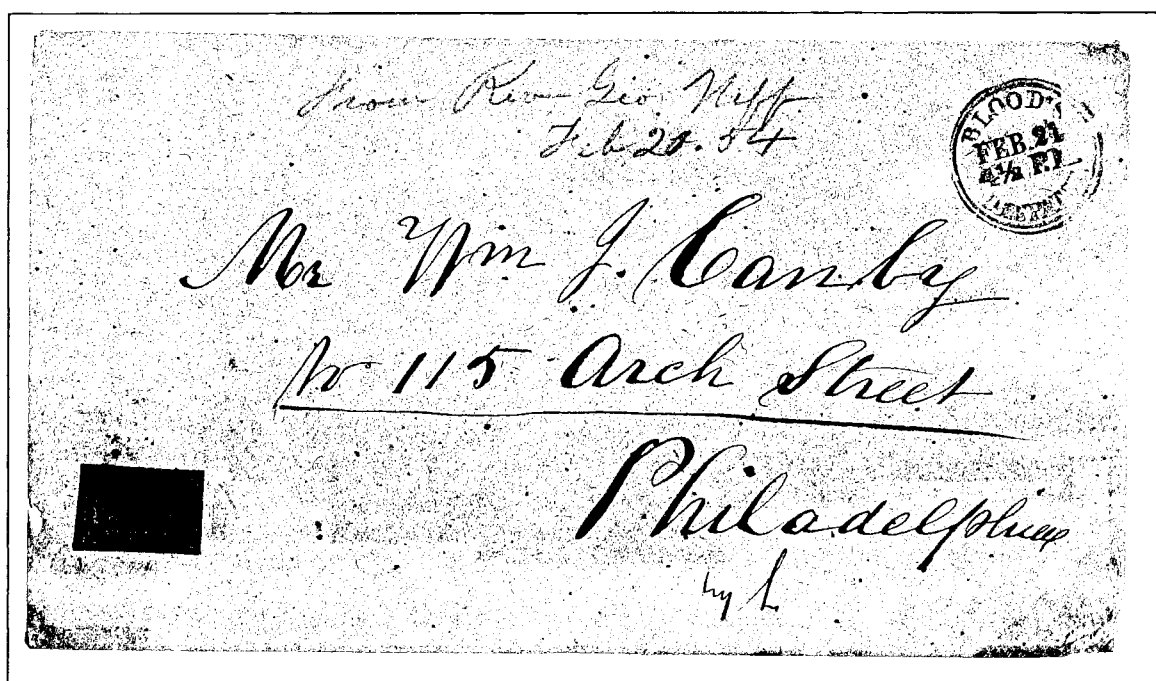 From Rev Geo Neff
Feb 20. 54
BLOOD'S
FEB. 21
4½ P.
Mr Wm J. Canby
No 115 Arch Street
Philadelphia